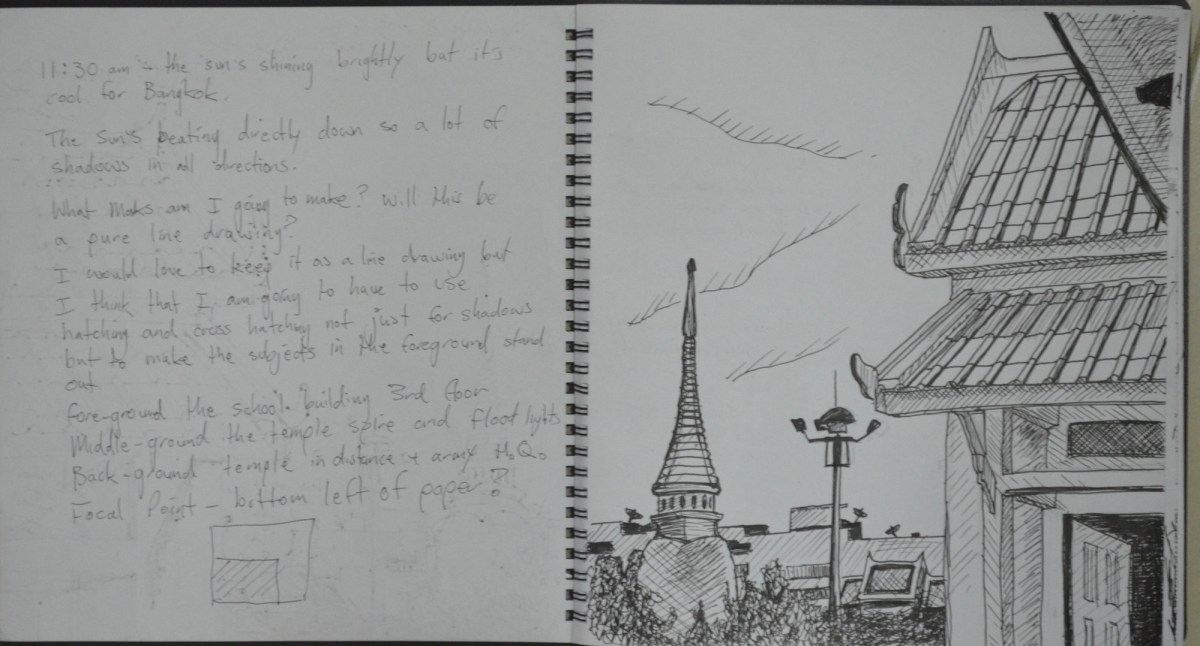 11:30 am - the sun's shining brightly but it's
cool for Bangkok.
The sun's beating directly down so a lot of
shadows in all directions.
What maks am I going to make? will this be
a pure line drawing?
I would love to keep it as a line drawing but
I think that I am going to have to use
hatching and cross hatching not just for shadows
but to make the subjects in the foreground stand
out.
fore-ground the school. building 3rd floor
Middle-ground the temple spire and flood lights
Back-ground - temple in distance + army H.Q.
Focal Point - bottom left of paper?